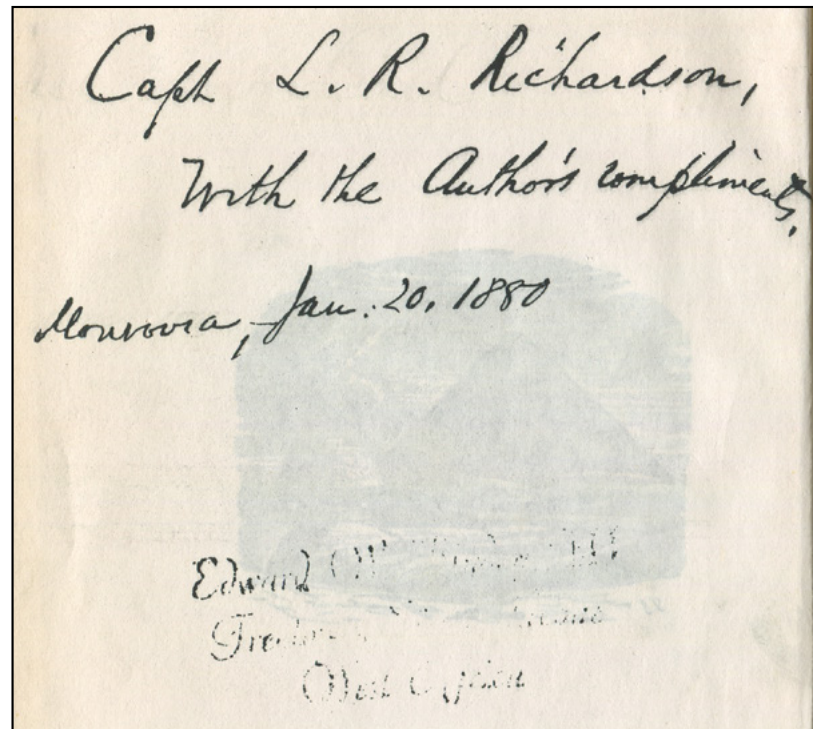 Capt L. R. Richardson,
With the Author's compliments,
Monrovia, Jan. 20, 1880
Edward
West Africa